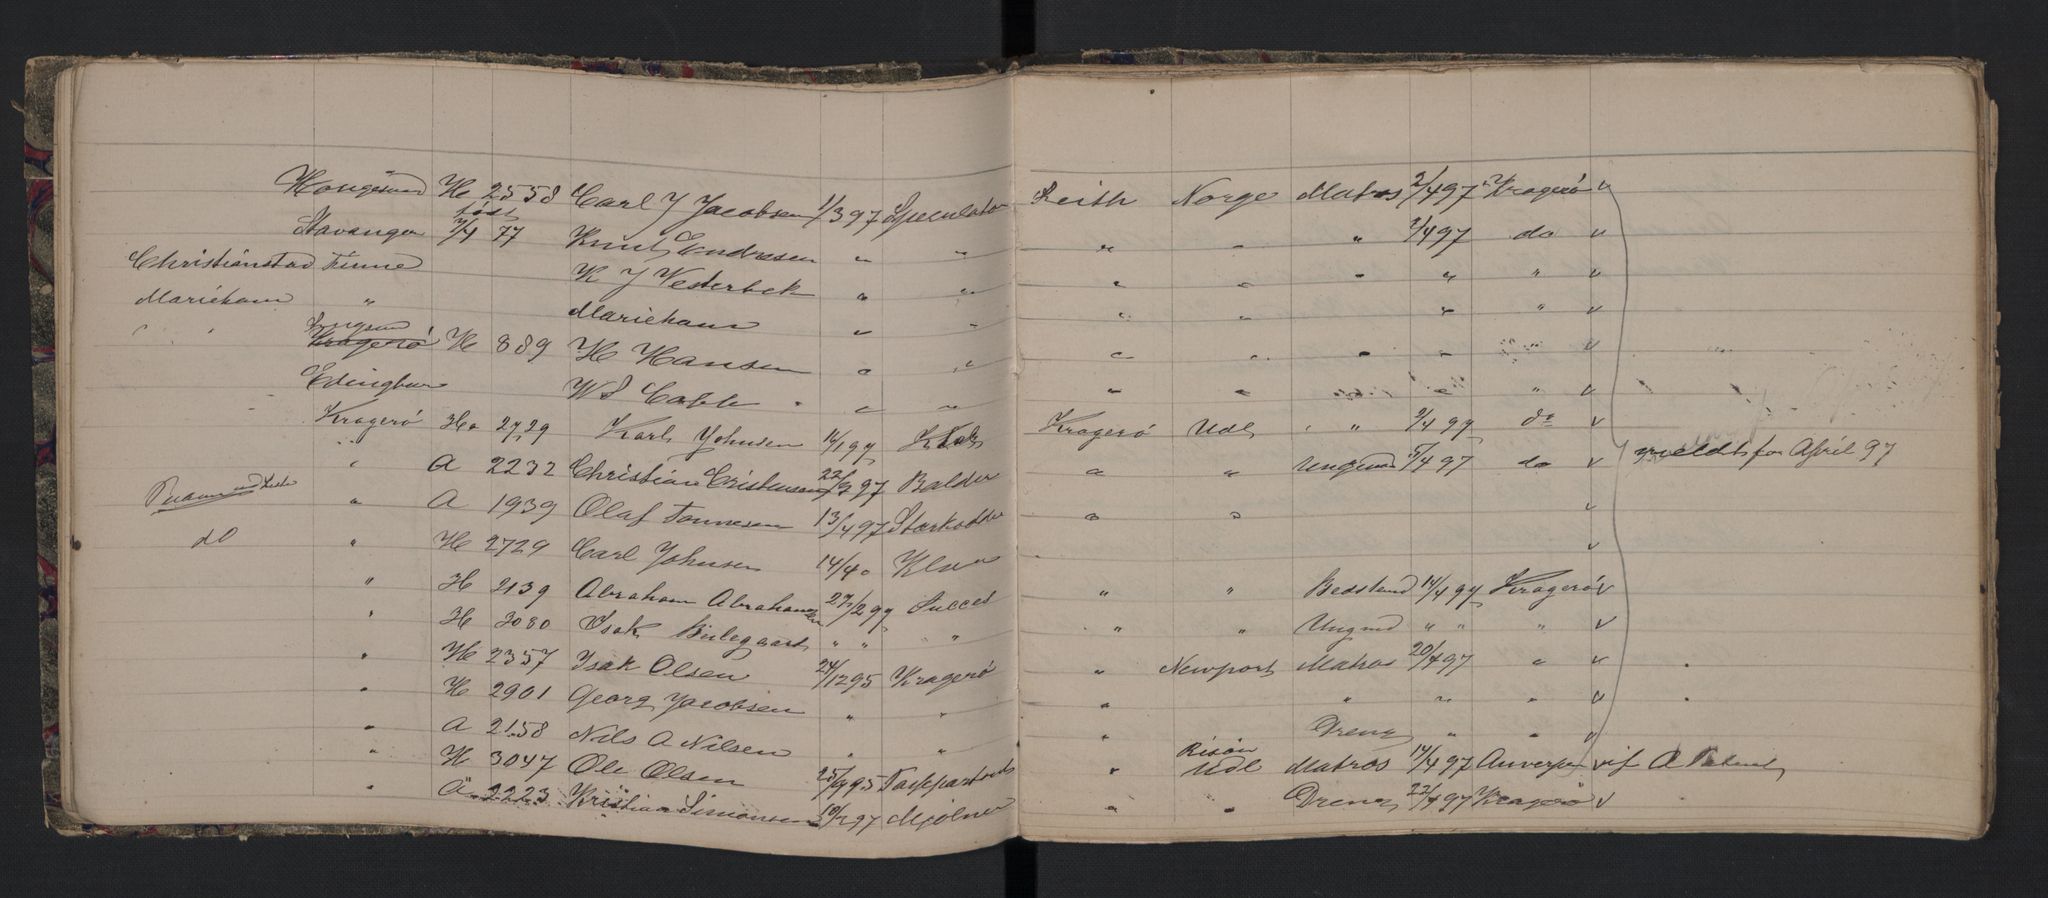 Haugesund H 2558 Carl J Jacobsen 1/3 97 Speculator Leith Norge Matros 2/4 97 Kragerø v
Stavanger født 7/4 77 Knut Endresen " " " " " 2/4 97 do v
Christianstad Finne K J Vesterbek " " " " " " " v
Marieham " Marieham " " " " " " v
" " Kragerø H 889 H Hansen " " " " " " v
Edingbur W S Cobb " " " " " " v
Kragerø H 2729 Karl Johnsen 14/1 97 Kragerø Udl " " 2/4 97 do v
" A 2232 Christian Cristensen 97 Balder " " Ungmd 5/4 97 do v meldt for April 97
" A 1939 Olaf Tønnesen 13/4 97 Starkodder " " v
do " H 2729 Carl Johnsen 14/4 v
" H 2139 Abraham Abrahamsen 27/2 97 Succes " " Bedstmd 14/4 97 Kragerø v
" H 3080 Isak " " " " " " Ungmd " " " v
" H 2357 Isak Olsen 24/12 95 Kragerø " Newport Matros 20/4 97 " v
" H 2901 Georg Jacobsen " " " " " " v
" A 2158 Nils A Nilsen " " " Dreng " " v
" H 3047 Ole Olsen 25/9 95 " Risør Udl Matros 14/4 97 Anverpen v
" A 2223 Kristian Simonsen 97 Mjølner " " Dreng 22/4 97 Kragerø v